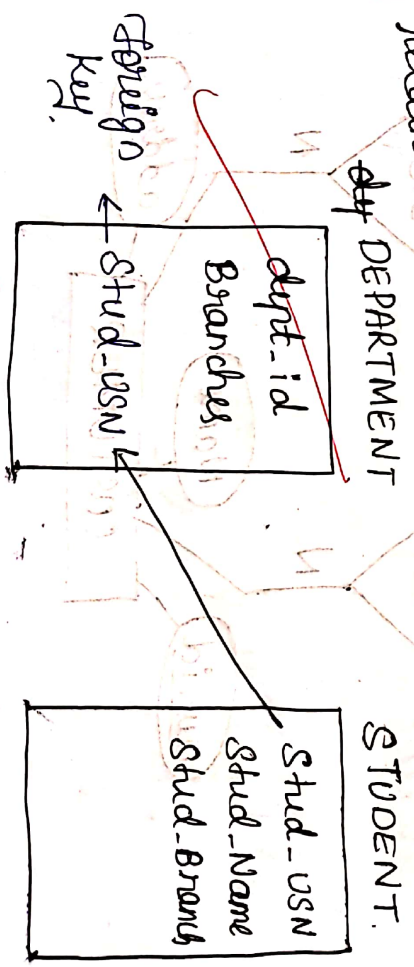 DEPARTMENT
dept_id
Branches
Stud_USN
foreign
key.
STUDENT.
Stud_USN
Stud_Name
Stud_Branch